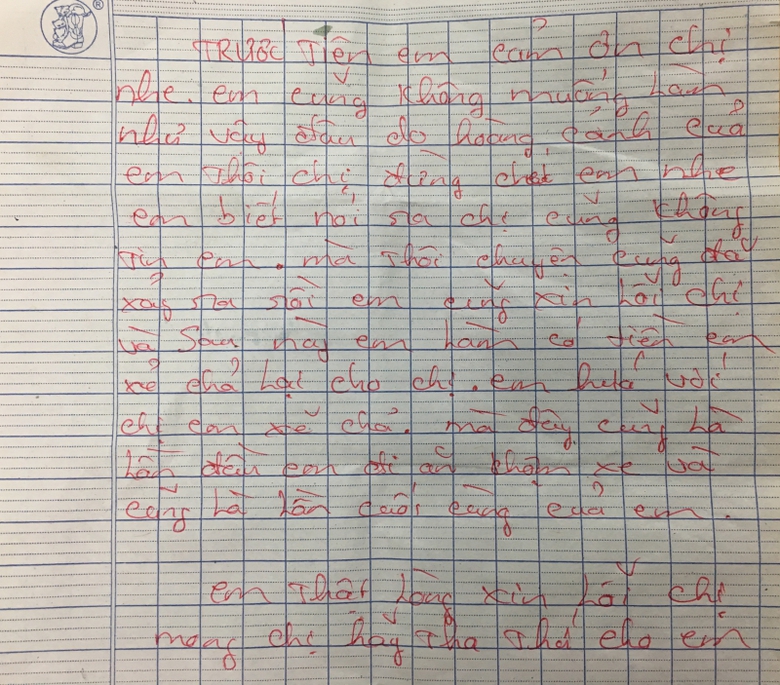 TRƯỚC Tiên em cảm ơn chị
nhe. em cũng Không muống Làm
như vậy đâu do hoàng cảnh cuả
em Thôi chị đừng chét em nhe
em biết nói ra chị cũng Không
tin em. mà Thôi chuyện cũng đã
xảy ra rồi em cũng xin Lỗi chị
và Sau này em Làm có tiền em
xẻ chả Lại cho chị. em hứa với
chị em xẽ chả. mà đây cũng Là
Lần đầu em đi ăn chộm xe và
cũng Là Lần cuối cùng cuả em.
em Thật Lòng xin Lỗi chị
mong chị hãy Tha Thứ cho em